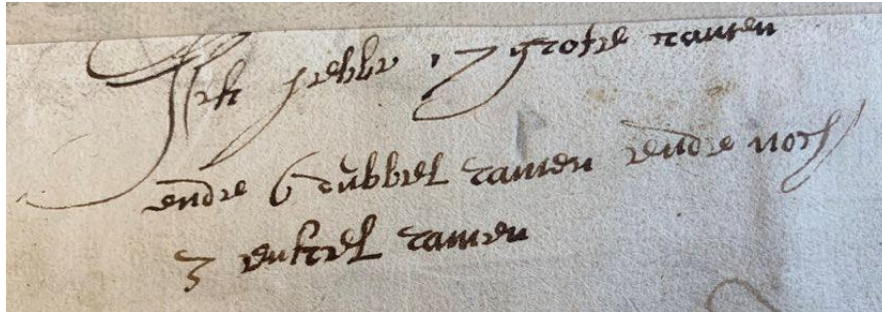 Jck hebbe 17 grote ramen
ende 6 dubbel ramen ende noch
3 enckel ramen